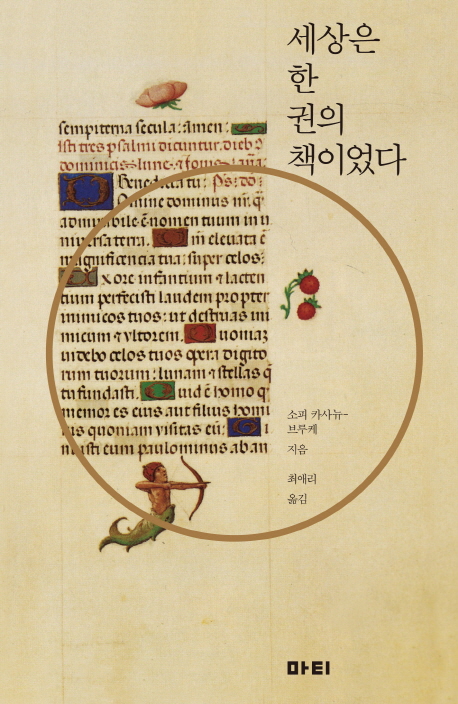 세상은
한
권의
책이었다
sempiterna secula: amen:
Isti tres psalmi dicuntur. dieb9
dominicis lune. &
Benedicta tu: Ps: do:
Domine dominus nr̄. q̄
admirabile ē nomen tuum in u
niuersa terra. Qm̄ eleuata ē
magnificencia tua: super celos:
Ex ore infantium & lacten
tium perfecisti laudem propter
inimicos tuos: ut destruas ini
micum & vltorem. Quoniaz
uidebo celos tuos opera digito
rum tuorum: lunam & stellas q̄
tu fundasti. Quid ē homo q
memor es eius aut filius homi
nis quoniam visitas eū: Mi
nuisti eum paulominus ab an
소피 카사뉴-
브루케
지음
최애리
옮김
마티